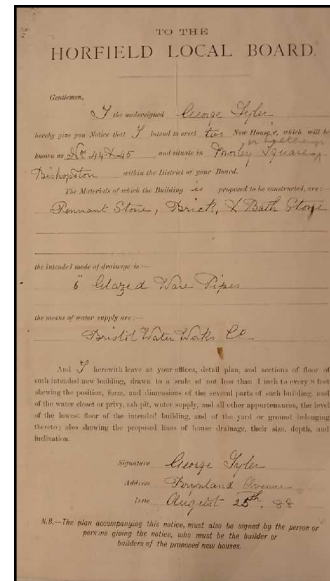 TO THE
HORFIELD LOCAL BOARD.
Gentlemen,
I the undersigned George Tyler
hereby give you Notice that I intend to erect two New Houses, which will be
known as Nos 44 & 45 and situate in Square
Bishopston within the District of your Board.
The Materials of which the Building is proposed to be constructed, are:—
Pennant Stone, Brick, & Bath Stone
the intended mode of drainage is:—
6" Glazed Ware Pipes
the means of water supply are:—
Bristol Water Works Co
And I herewith leave at your offices, detail plan, and sections of floor of
such intended new building, drawn to a scale of not less than 1 inch to every 8 feet
shewing the position, form, and dimensions of the several parts of such building, and
of the water closet or privy, ash pit, water supply, and all other appurtenances, the level
of the lowest floor of the intended building, and of the yard or ground belonging
thereto; also shewing the proposed lines of house drainage, their size, depth, and
inclination.
Signature George Tyler
Address Avenue
Date August 25th, 88
N.B.—The plan accompanying this notice, must also be signed by the person or
persons giving the notice, who must be the builder or
builders of the proposed new houses.